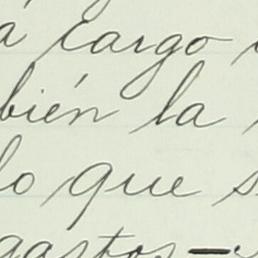 a cargo
bién la
lo que s
gastos —